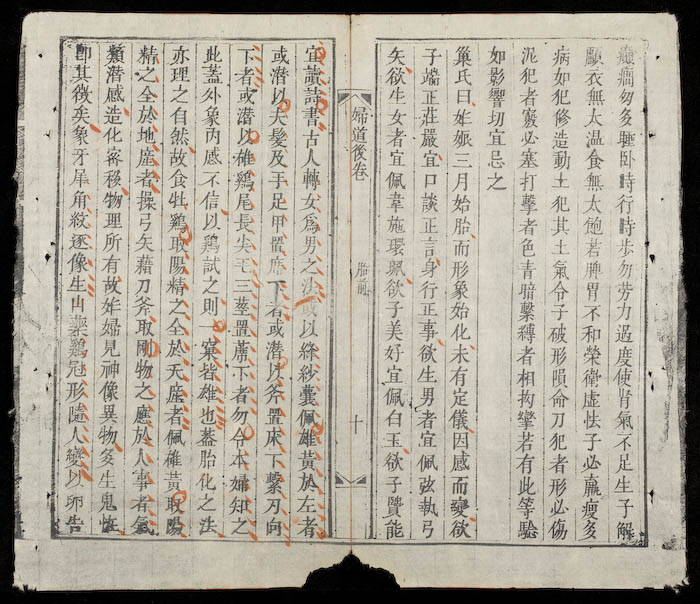 癲癇勿多睡卧時行時步勿劳力過度使腎氣不足生子解
顱衣無太温食無太飽若脾胃不和榮衛虛怯子必羸瘦多
病如犯修造動土犯其土氣令子破形隕命刀犯者形必傷
泥犯者竅必塞打擊者色青暗繫縛者相拘攣若有此等驗
如影響切宜忌之
巢氏曰姙娠三月始胎而形象始化未有定儀因感而變欲
子端正莊嚴宜口談正言身行正事欲生男者宜佩弦執弓
矢欲生女者宜佩韋施環珮欲子美好宜佩白玉欲子賢能
婦道後卷
胎前
十
宜讀詩書古人轉女爲男之法或以絳紗囊佩雄黃於左者
或潜以夫髮及手足甲置席下者或潜以斧置床下繫刃向
下者或潜以雄鷄尾長尖毛三莖置蓆下者勿令本婦知之
此蓋外象内感不信以鷄試之則一窠皆雄也蓋胎化之法
亦理之自然故食牡鷄取陽精之全於天產者佩雄黃取陽
精之全於地產者操弓矢藉刀斧取剛物之應於人事者氣
類潜感造化密移物理所有故姙婦見神像異物多生鬼怪
卽其徵矣象牙犀角紋逐像生山藥鷄冠形隨人變以卵告